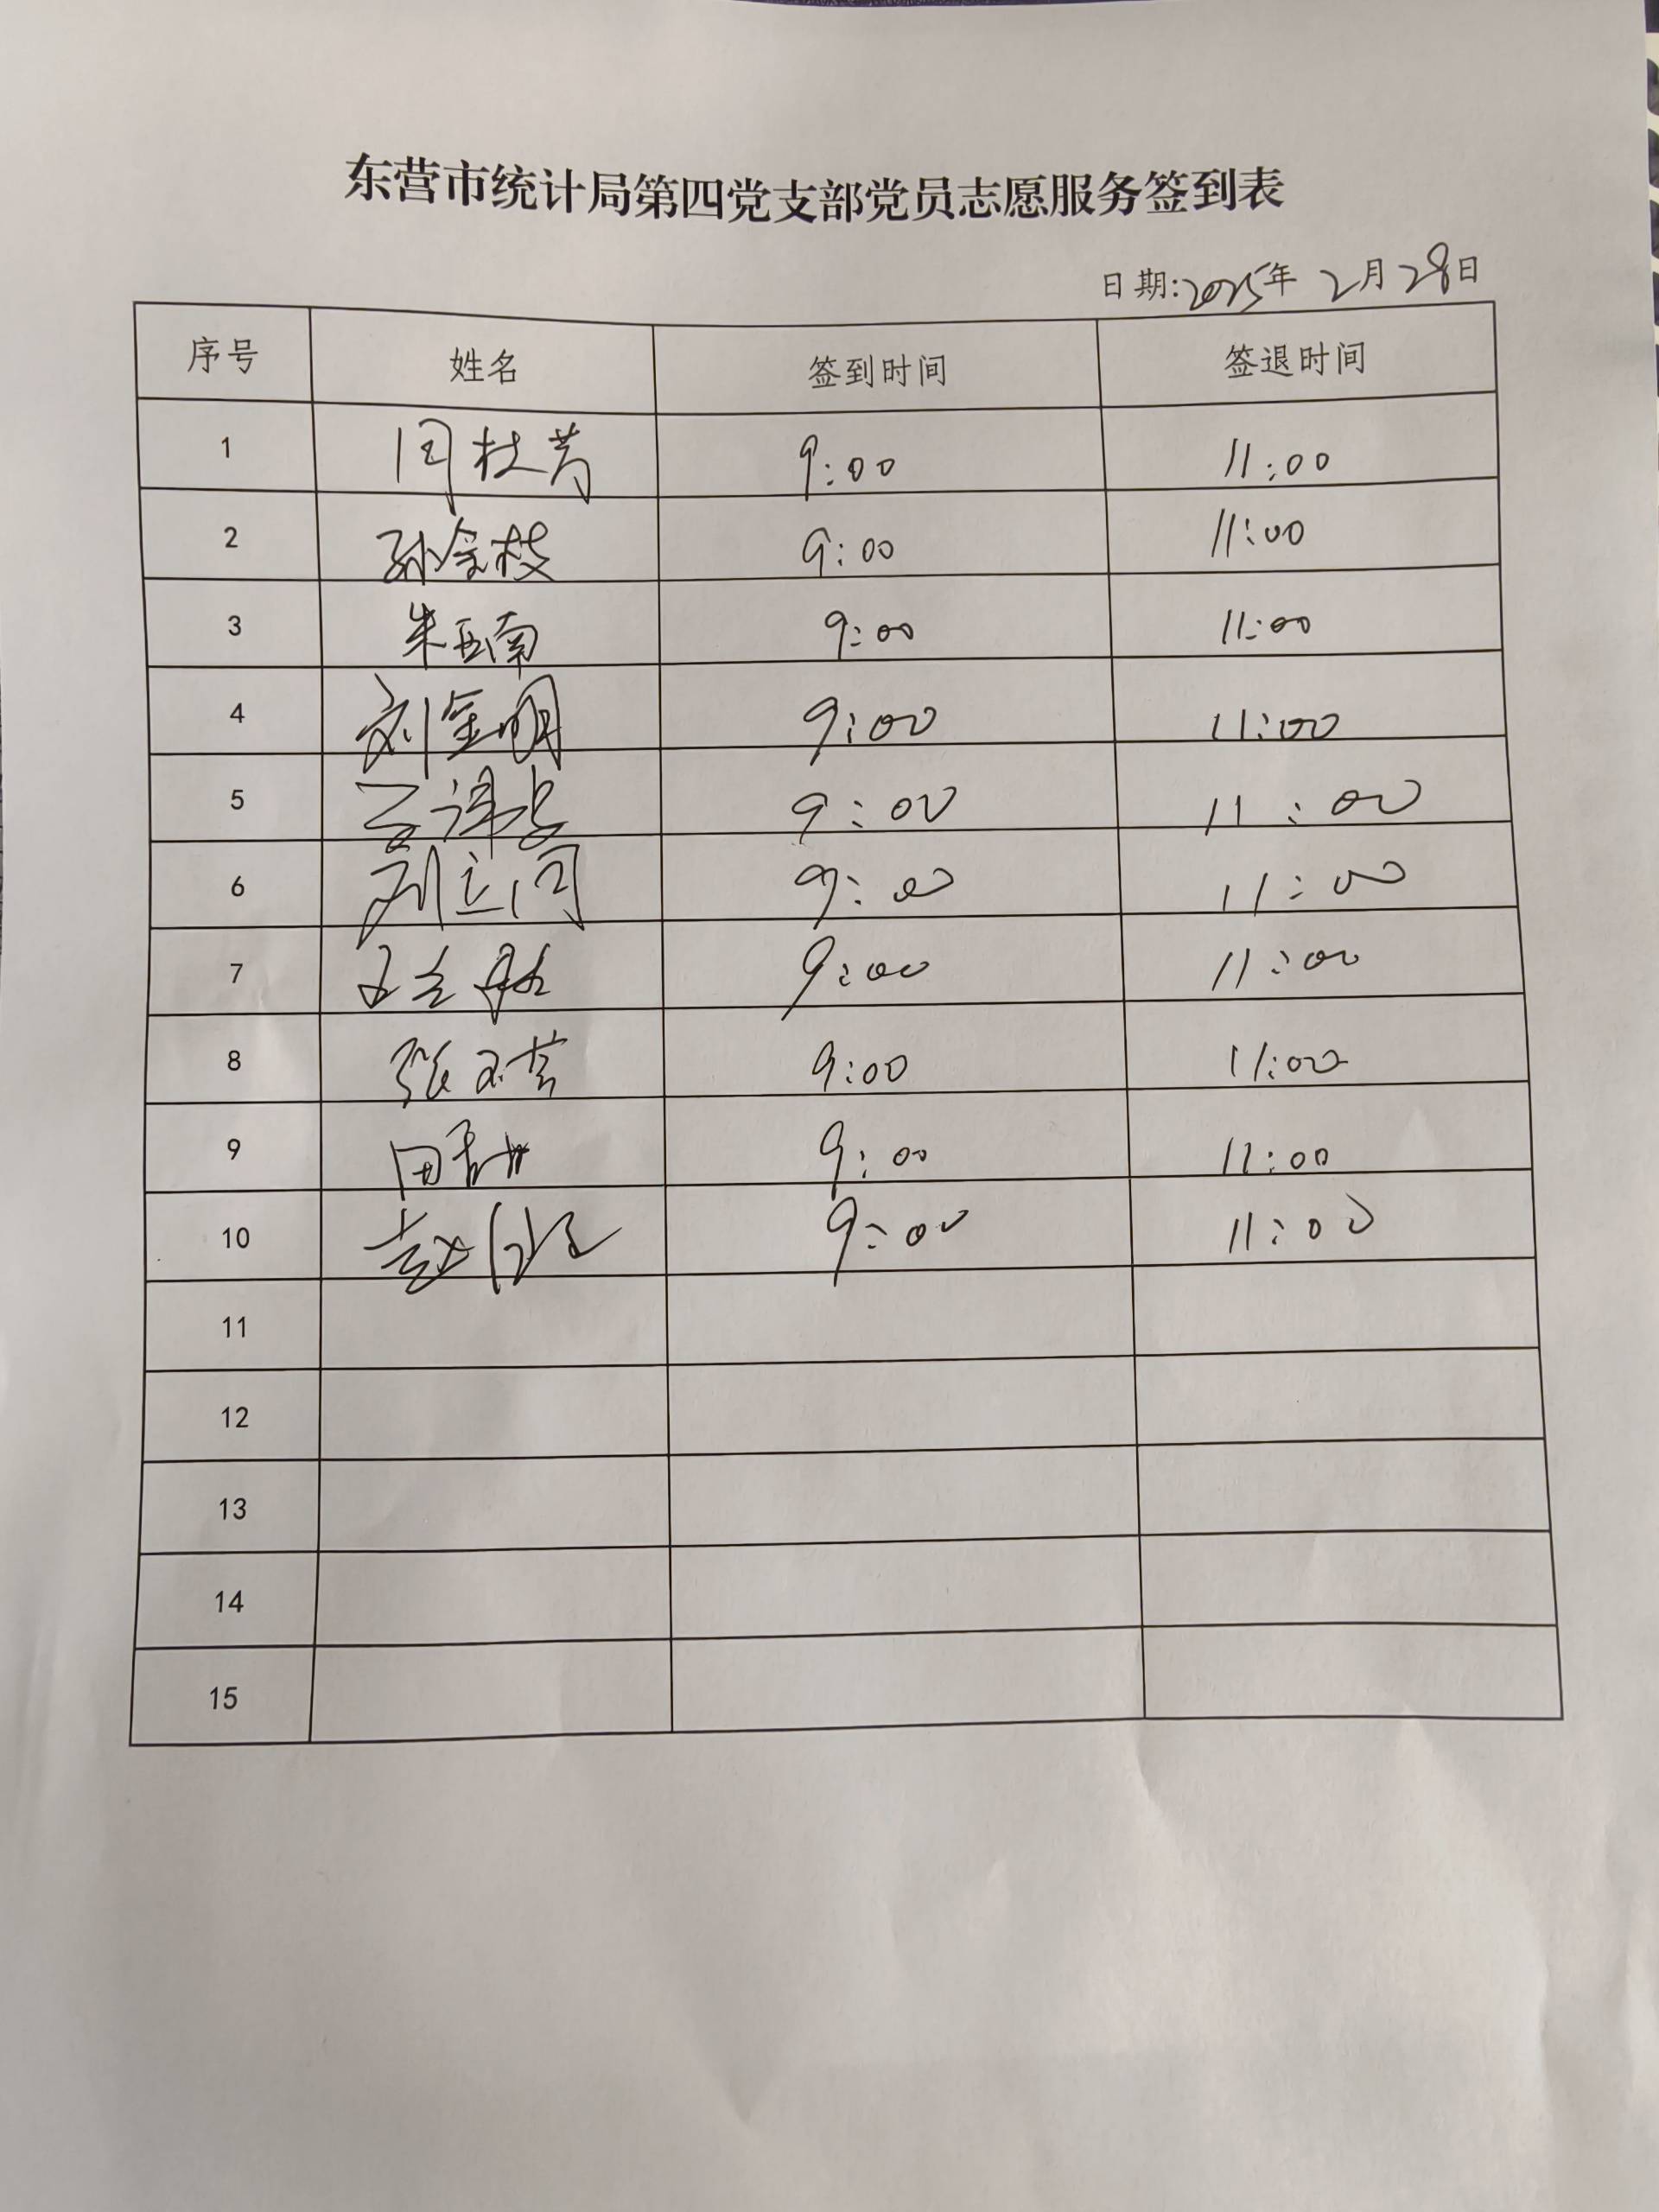 东营市统计局第四党支部党员志愿服务签到表
日期:2025年 2月28日
序号 姓名 签到时间 签退时间
1 闫杜芳 9:00 11:00
2 孙金枝 9:00 11:00
3 朱亚南 9:00 11:00
4 刘金明 9:00 11:00
5 9:00 11:00
6 9:00 11:00
7 9:00 11:00
8 张玉芸 9:00 11:00
9 田 9:00 11:00
10 赵 9:00 11:00
11
12
13
14
15